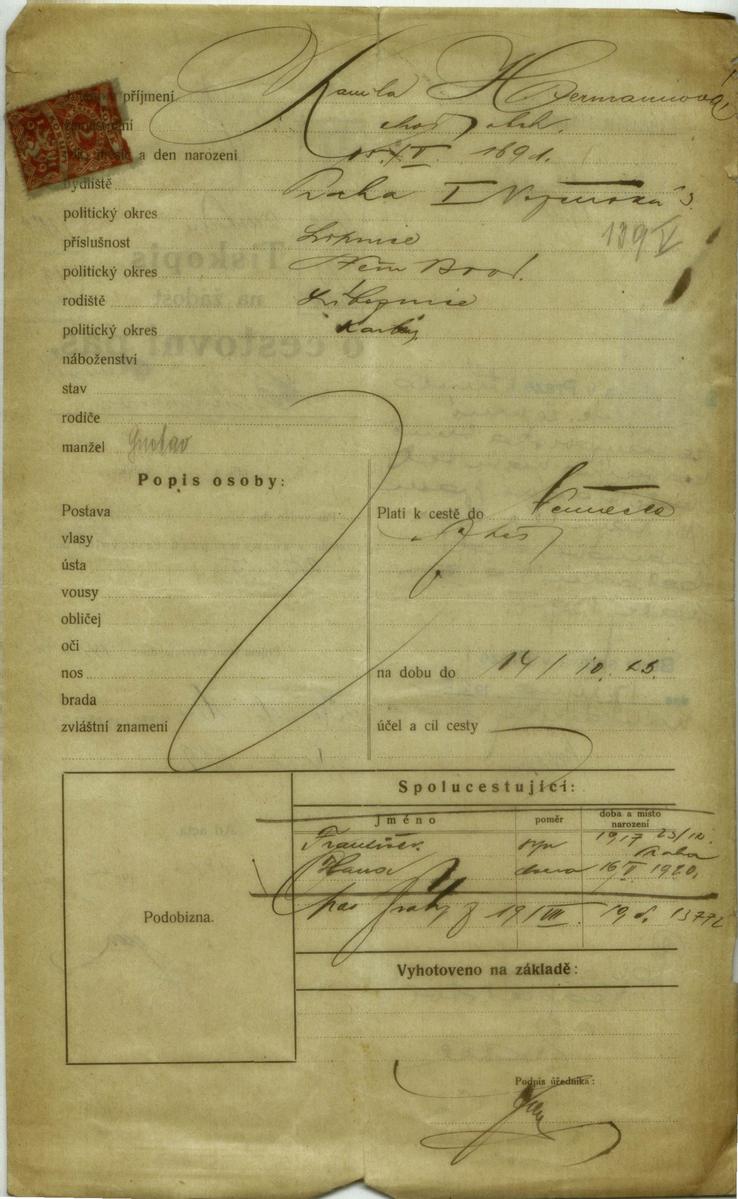 příjmení Kamila Hermannová
choť obch.
a den narození 1891.
bydliště Praha I
politický okres
příslušnost Lipnice 139 V
politický okres Něm Brod.
rodiště Libeznice
politický okres Karlín
náboženství
stav
rodiče
manžel Gustav
Popis osoby:
Postava
vlasy
ústa
vousy
obličej
oči
nos
brada
zvláštní znamení
Platí k cestě do Německa
na dobu do 14/10.25.
účel a cíl cesty
Spolucestující:
Jméno poměr doba a místo narození
František syn 1917 23/10. Praha
Hana dcera 16 V 1920.
pas
Podobizna.
Vyhotoveno na základě:
Podpis úředníka: